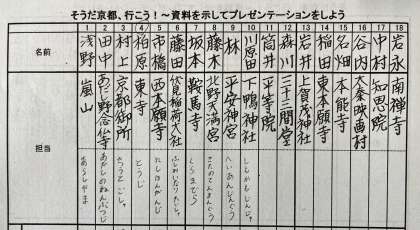 そうだ京都、行こう！～資料を示してプレゼンテーションをしよう
1 2 3 4 5 6 7 8 9 10 11 12 13 14 15 16 17 18
名前
浅野
田中
村上
柏原
市橋
藤田
坂本
藤木
林
川原田
筒井
森川
石井
稲田
石畑
谷内
中村
岩永
担当
嵐山
あだし野念仏寺
京都御所
東寺
西本願寺
伏見稲荷大社
鞍馬寺
北野天満宮
平安神宮
下鴨神社
平等院
三十三間堂
上賀茂神社
東本願寺
本能寺
太秦映画村
知恩院
南禅寺
あらしやま
あだしのねんぶつじ
きょうとごしょ
とうじ
にしほんがんじ
ふしみいなりたいしゃ
くらまでら
きたのてんまんぐう
へいあんじんぐう
しもがもじんじゃ